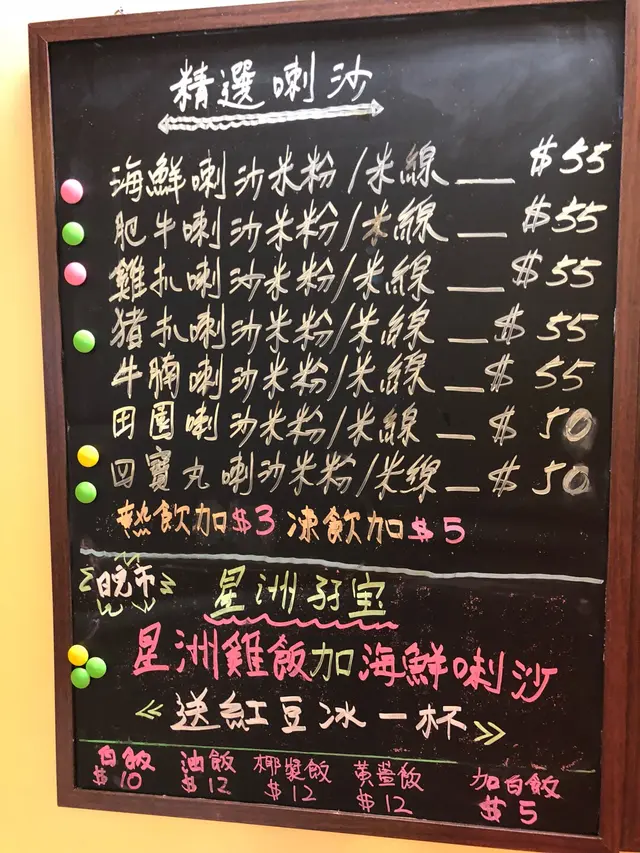 精選喇沙
海鮮喇沙米粉/米線 — $55
肥牛喇沙米粉/米線 — $55
雞扒喇沙米粉/米線 — $55
豬扒喇沙米粉/米線 — $55
牛腩喇沙米粉/米線 — $55
田園喇沙米粉/米線 — $50
四寶丸喇沙米粉/米線 — $50
熱飲加$3 凍飲加$5
晚市 星洲孖宝
星洲雞飯加海鮮喇沙
《送紅豆冰一杯》
白飯 油飯 椰漿飯 黃薑飯 加白飯
$10 $12 $12 $12 $5